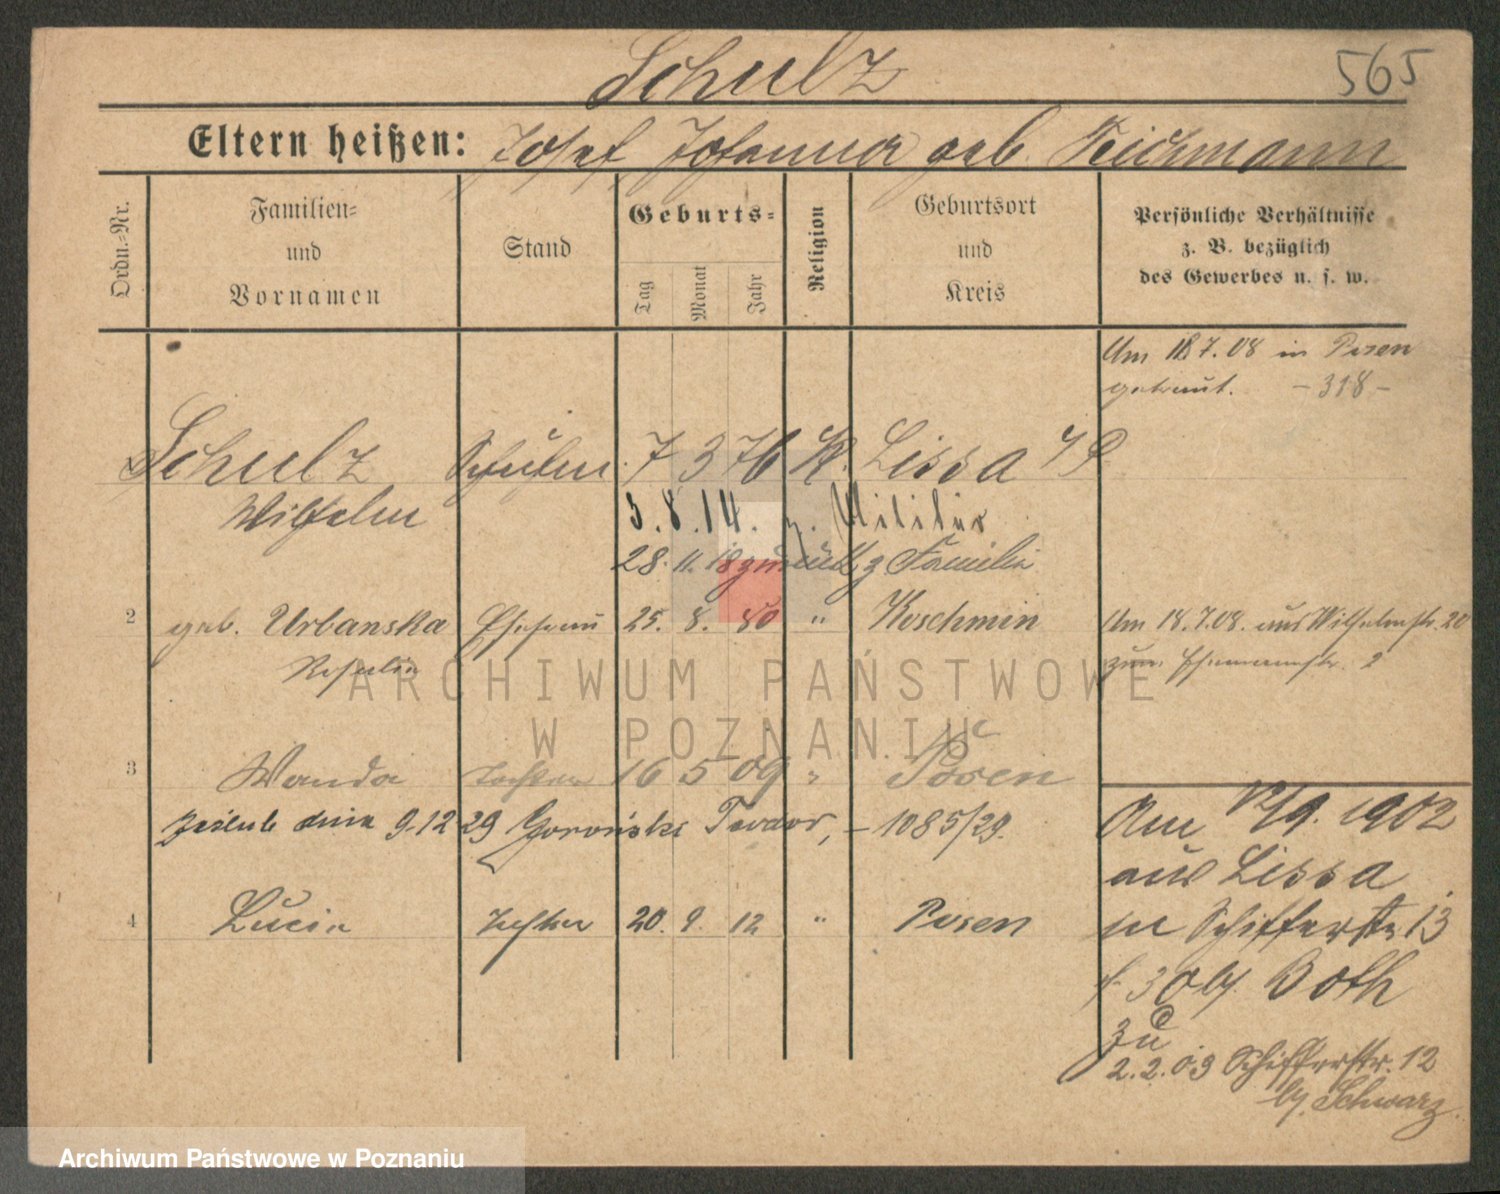 Schulz
565
Eltern heißen: Josef Johanna geb. Teichmann
Ordn.-Nr.
Familien-
und
Vornamen
Stand
Geburts-
Tag
Monat
Jahr
Religion
Geburtsort
und
Kreis
Persönliche Verhältnisse
z. B. bezüglich
des Gewerbes u. s. w.
Am 18.7.08 in Posen
getraut. - 318 -
Schulz 7 3 76 K. Lissa
Wilhelm
3.8.14. z. Militär
28.11.18 zurück z Familie
2 geb. Urbanska Ehefrau 25. 8. 80 " Koschmin
Am 18.7.08. aus Wilhelmstr. 20
2
ARCHIWUM PAŃSTWOWE
W POZNANIU
3 Wanda Tochter 16 5 09 " Posen
9.12 29 Goroński Teodor, - 1085/29.
4 Lucia Tochter 20. 9. 12 " Posen
Am 12/9. 1902
aus Lissa
in Schifferstr. 13
b/. Both
zu
2.2.03 Schifferstr. 12
b/. Schwarz.
Archiwum Państwowe w Poznaniu